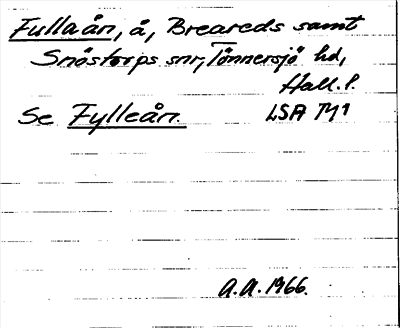 Fullaån, å, Breareds samt
Snöstorps snr, Tönnersjö hd,
Hall. l.
Se Fylleån. LSA M1
A.A. 1966.